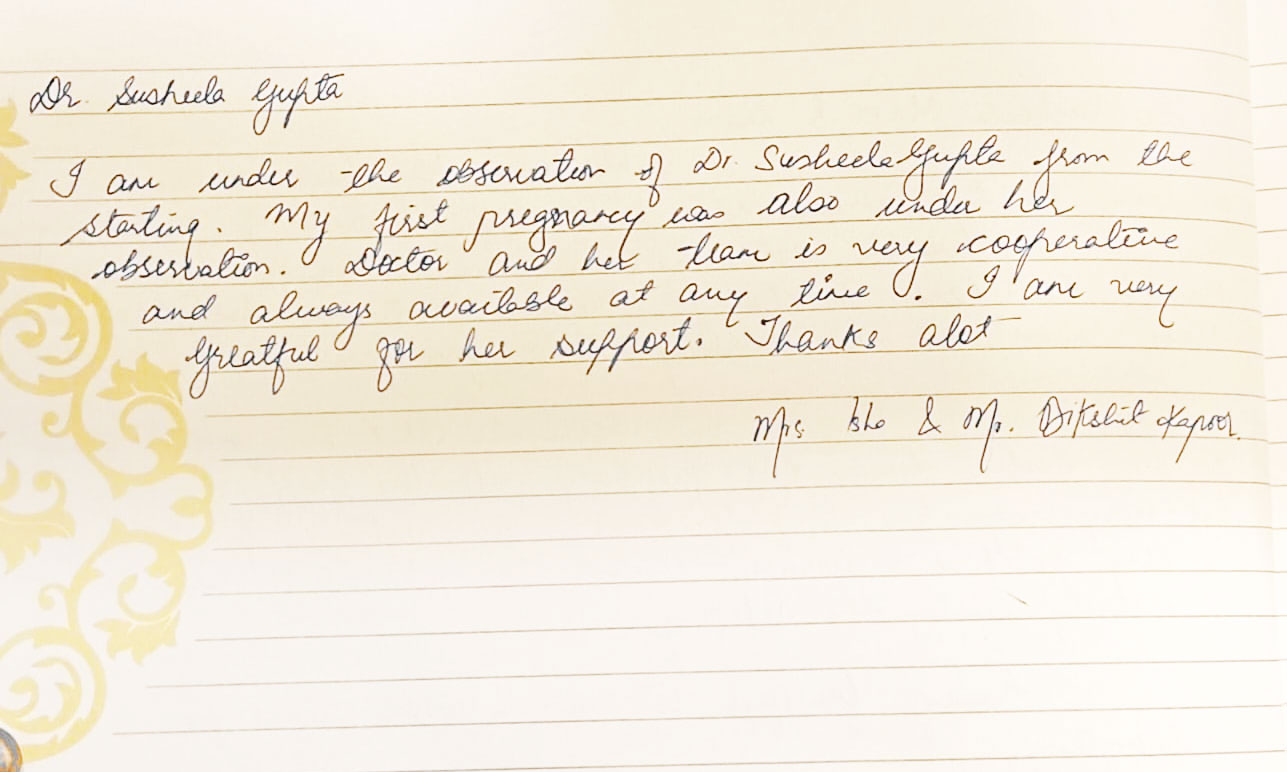 Dr. Susheela Gupta
I am under the observation of Dr. Susheela Gupta from the
starting. My first pregnancy was also under her
observation. Doctor and her team is very cooperative
and always available at any time. I am very
greatful for her support. Thanks alot
Mrs & Mr. Dikshit Kapoor.